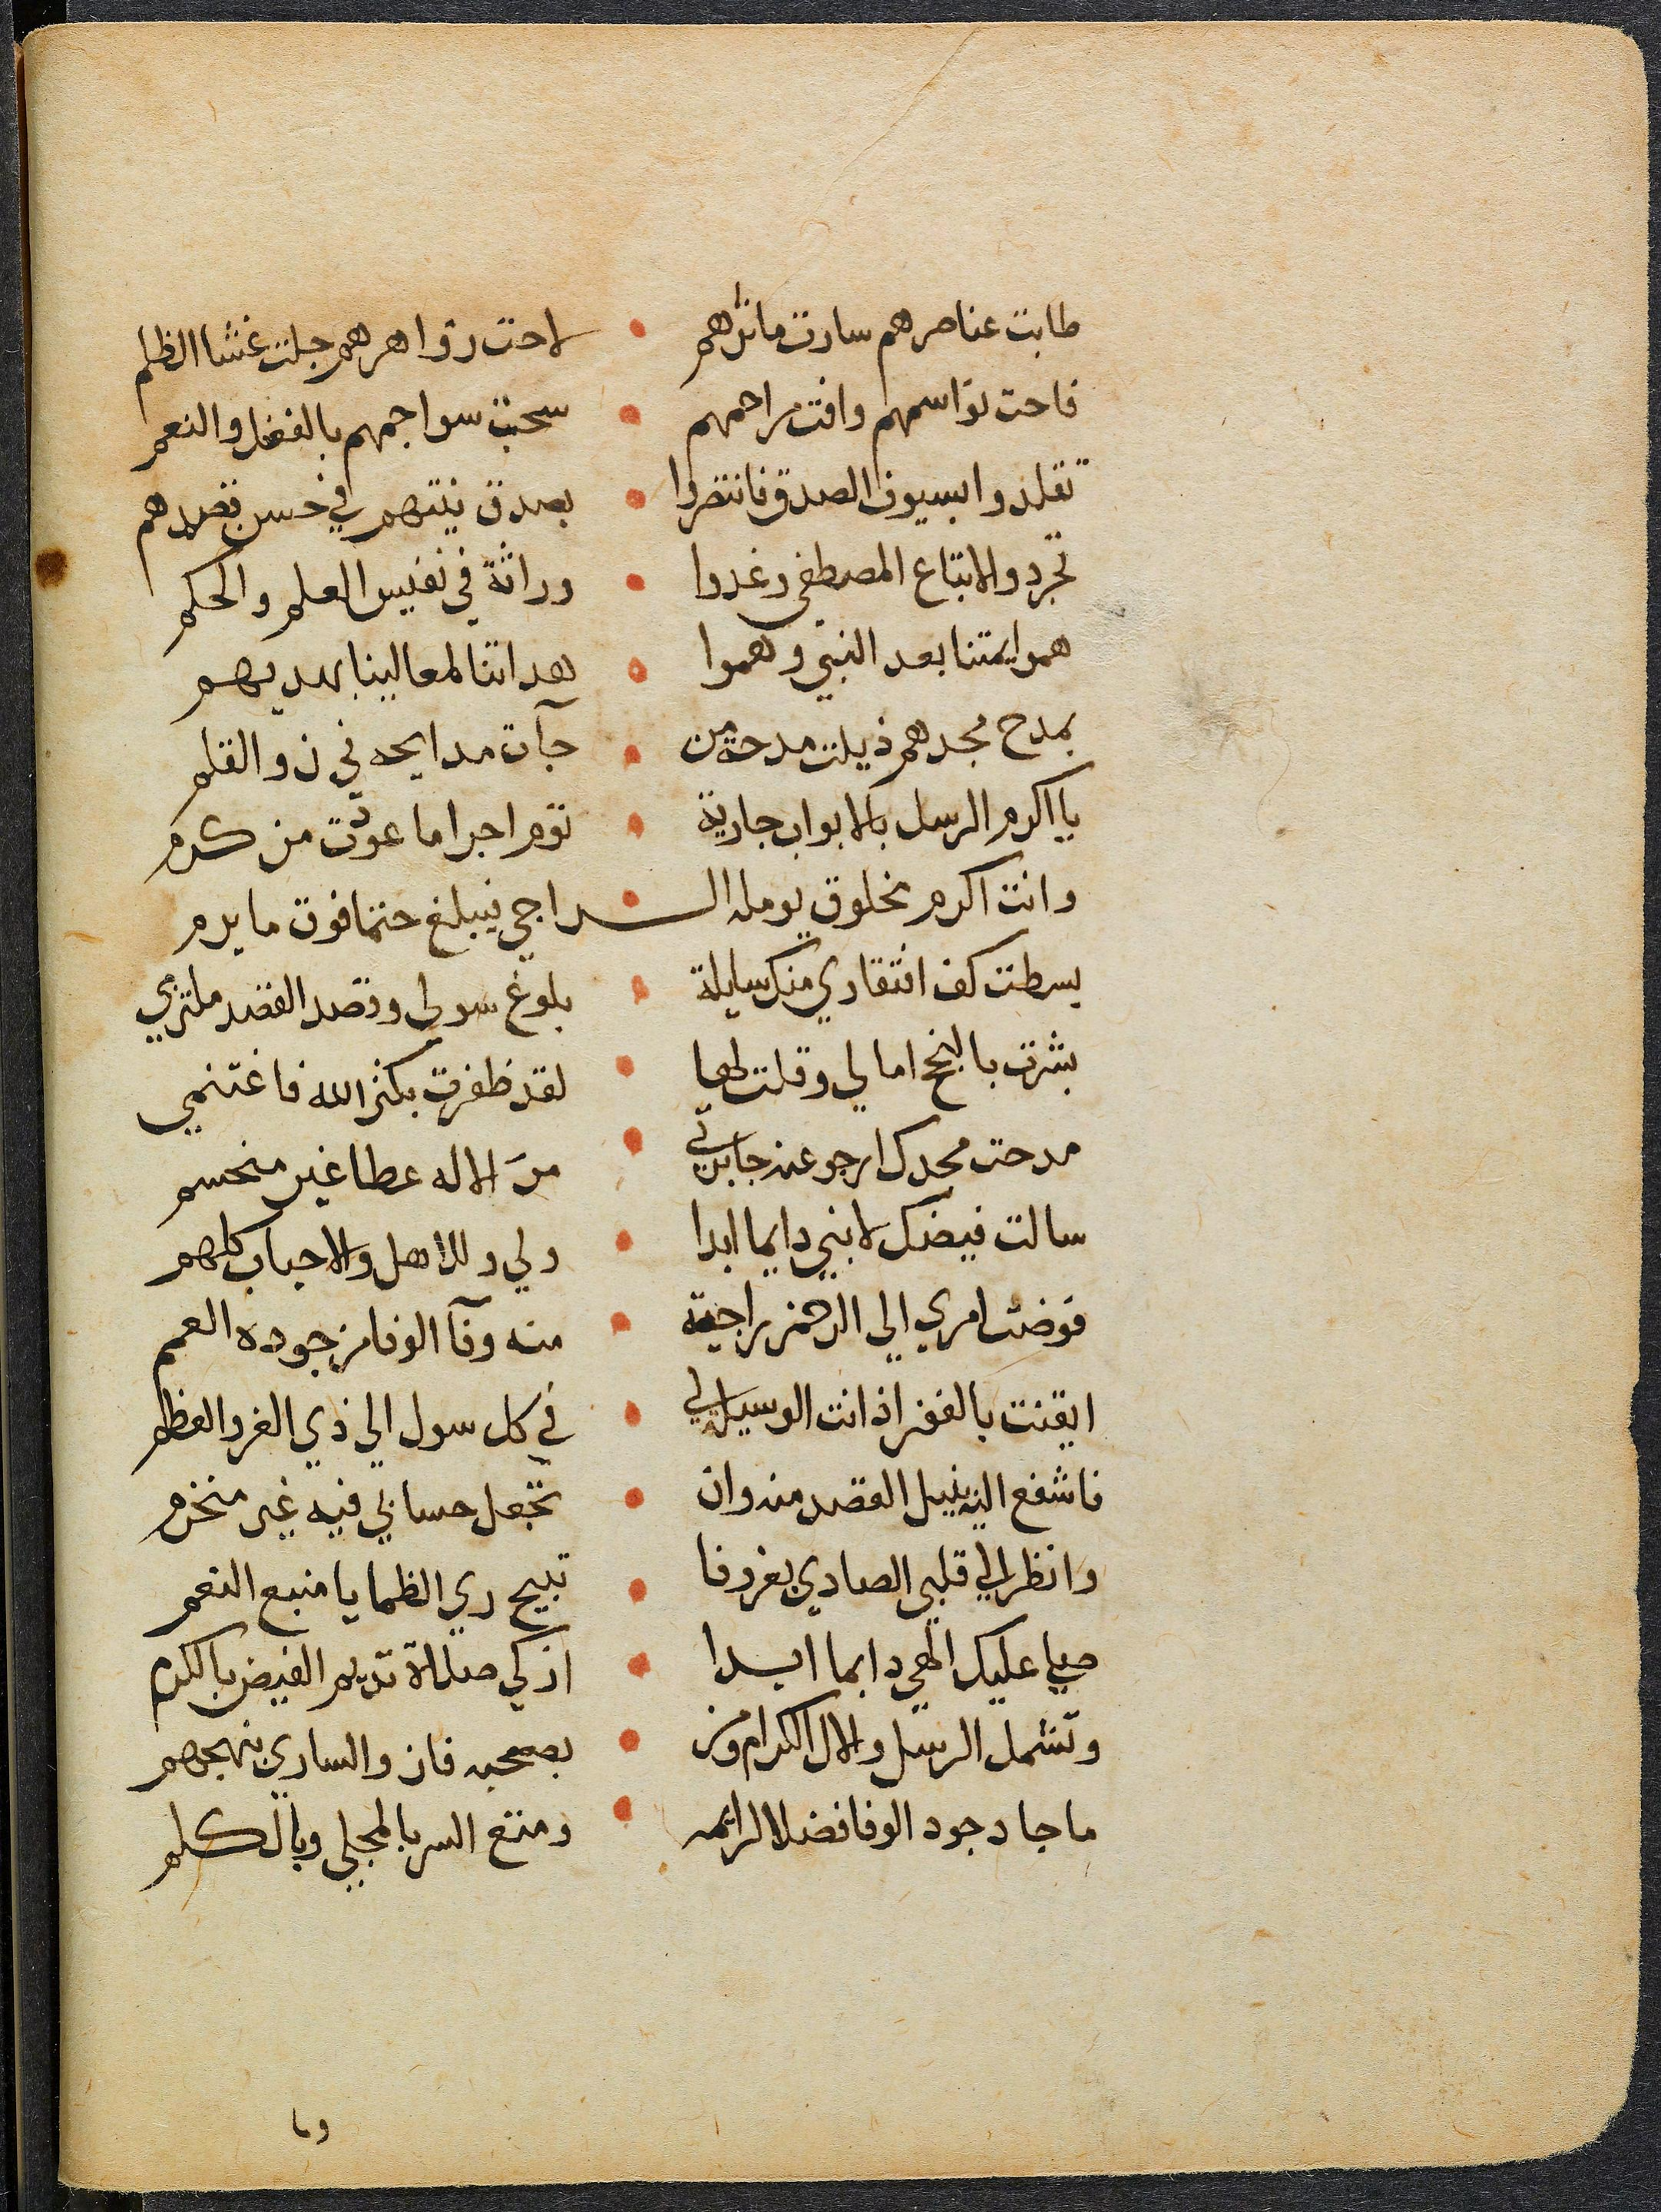 طابت عناصرهم سارت ماثرهم • لاحت زواهرهم جلت غشا الظلم
فاحت نواسمهم وافت مراحمهم • سحت سواجمهم بالفضل والنعم
تقلدوا بسيوف الصدق فانتصروا • بصدق نيتهم في حسن قصدهم
تجردوا لاتباع المصطفى وغدوا • وراثة في نفيس العلم والحكم
هموا يمتنا بعد النبي وهموا • هداتنا لمعالينا بهديهم
بمدح مجدهم ذيلت مدحة من • جآت مدايحه في ن والقلم
يا اكرم الرسل بالابواب جارية • تؤم اجرا ما عودت من كرم
وانت اكرم مخلوق يومله الـراجي فيبلغ حتما فوق ما يرم
بسطت كف افتقاري منك سايلة • بلوغ سولي وقصد القصد ملتزمي
بشرت بالنجح امالي وقلت لها • لقد ظفرت بكنز الله فاغتنمي
مدحت مجدك ارجو عنه جايزتي • من الاله عطا غير منحسم
سالت فيضك لابني دايما ابدا • ولي وللاهل والاحباب كلهم
فوضت امري الى الرحمن راجية • منه وفآ الوفا من جوده العمم
ايقنت بالفوز اذ انت الوسيلة لي • في كل سول الى ذي العز والعظم
فاشفع اليه بنيل القصد منه وان • تجعل حسابي فيه غير منخرم
وانظر الى قلبي الصادي بغرفا • تبيح ري الظما يا منبع النعم
صلى عليك الهي دايما ابدا • ازكي صلاة تديم الفيض بالكرم
وتشمل الرسل والال الكرام ومن • بصحبه فاز والساري بنهجهم
ما جاد جود الوفا فضلا لزايره • ومتع السر بالمجلى وبالكلم
وما